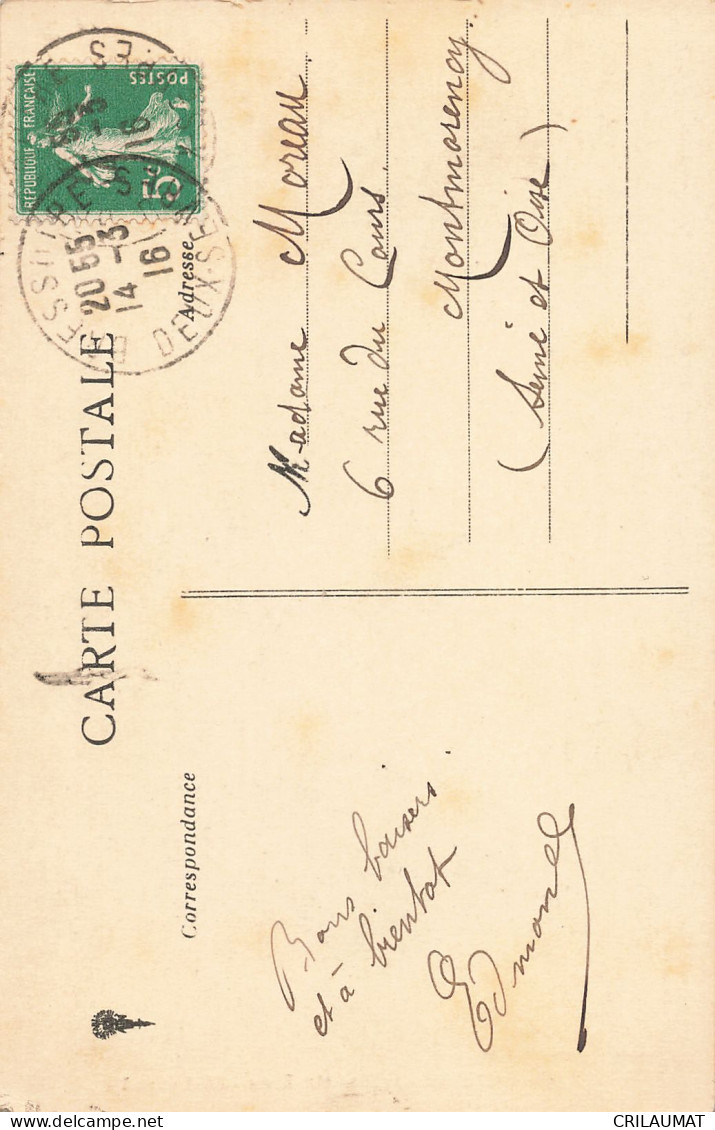 CARTE POSTALE
Correspondance
Adresse
Bons baisers
et à bientot
Edmond
Madame Moreau
6 rue du Cours
Montmorency
(Seine et Oise)
REPUBLIQUE FRANÇAISE
POSTES
5c
BRESSUIRE
DEUX-SEVRES
20 55
14 -3
16
CRILAUMAT